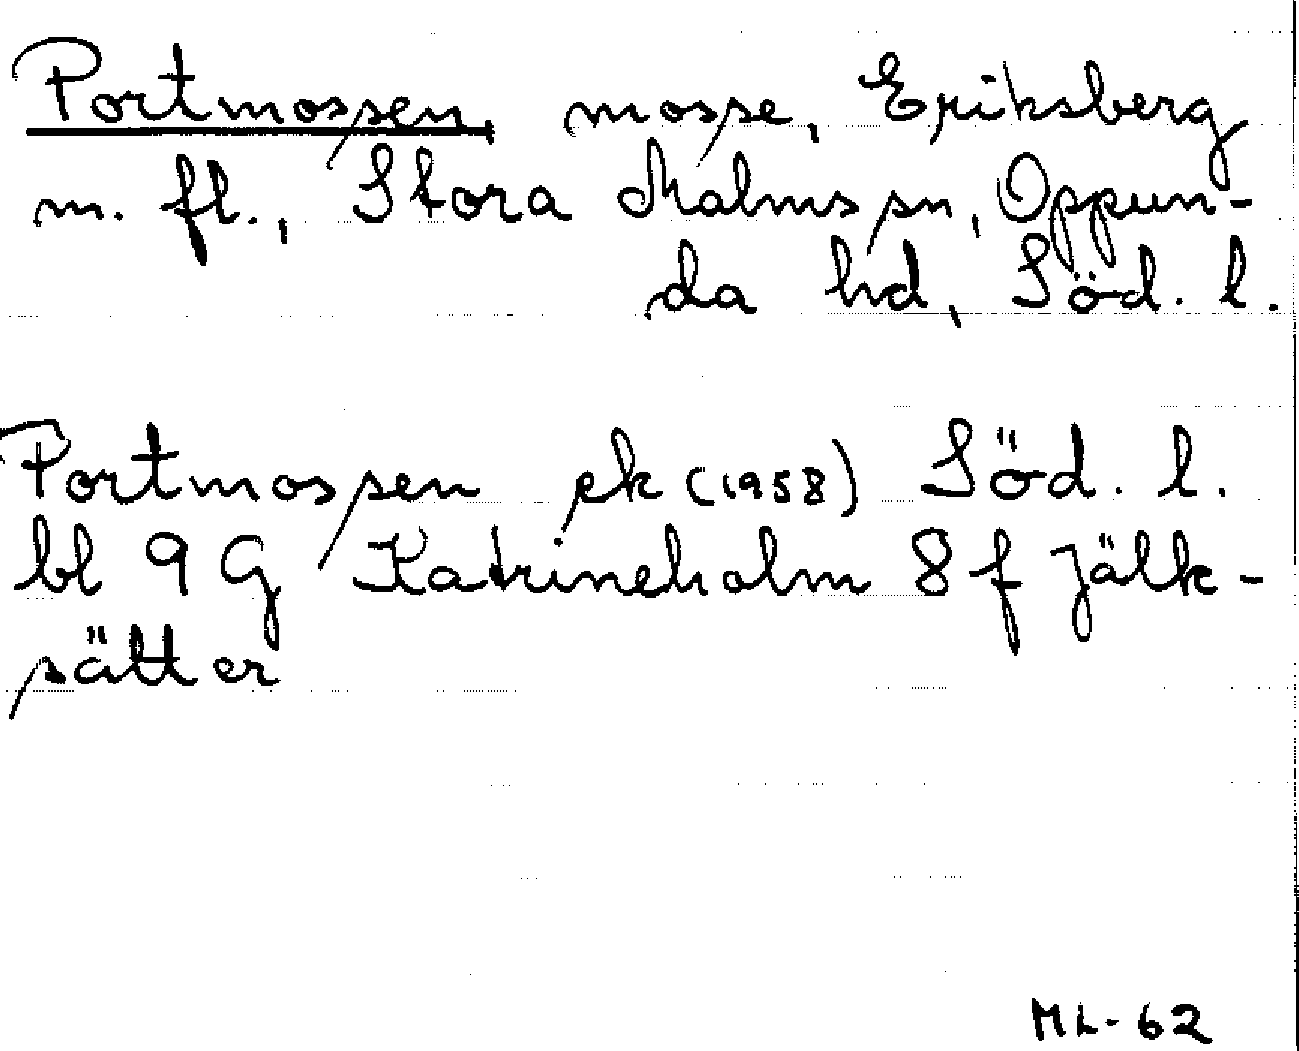 Portmossen, mosse, Eriksberg
m. fl., Stora Malms sn, Oppun-
da hd, Söd. l.
Portmossen ek (1958) Söd. l.
bl 9 G Katrineholm 8 f Jälk-
sätter
ML-62